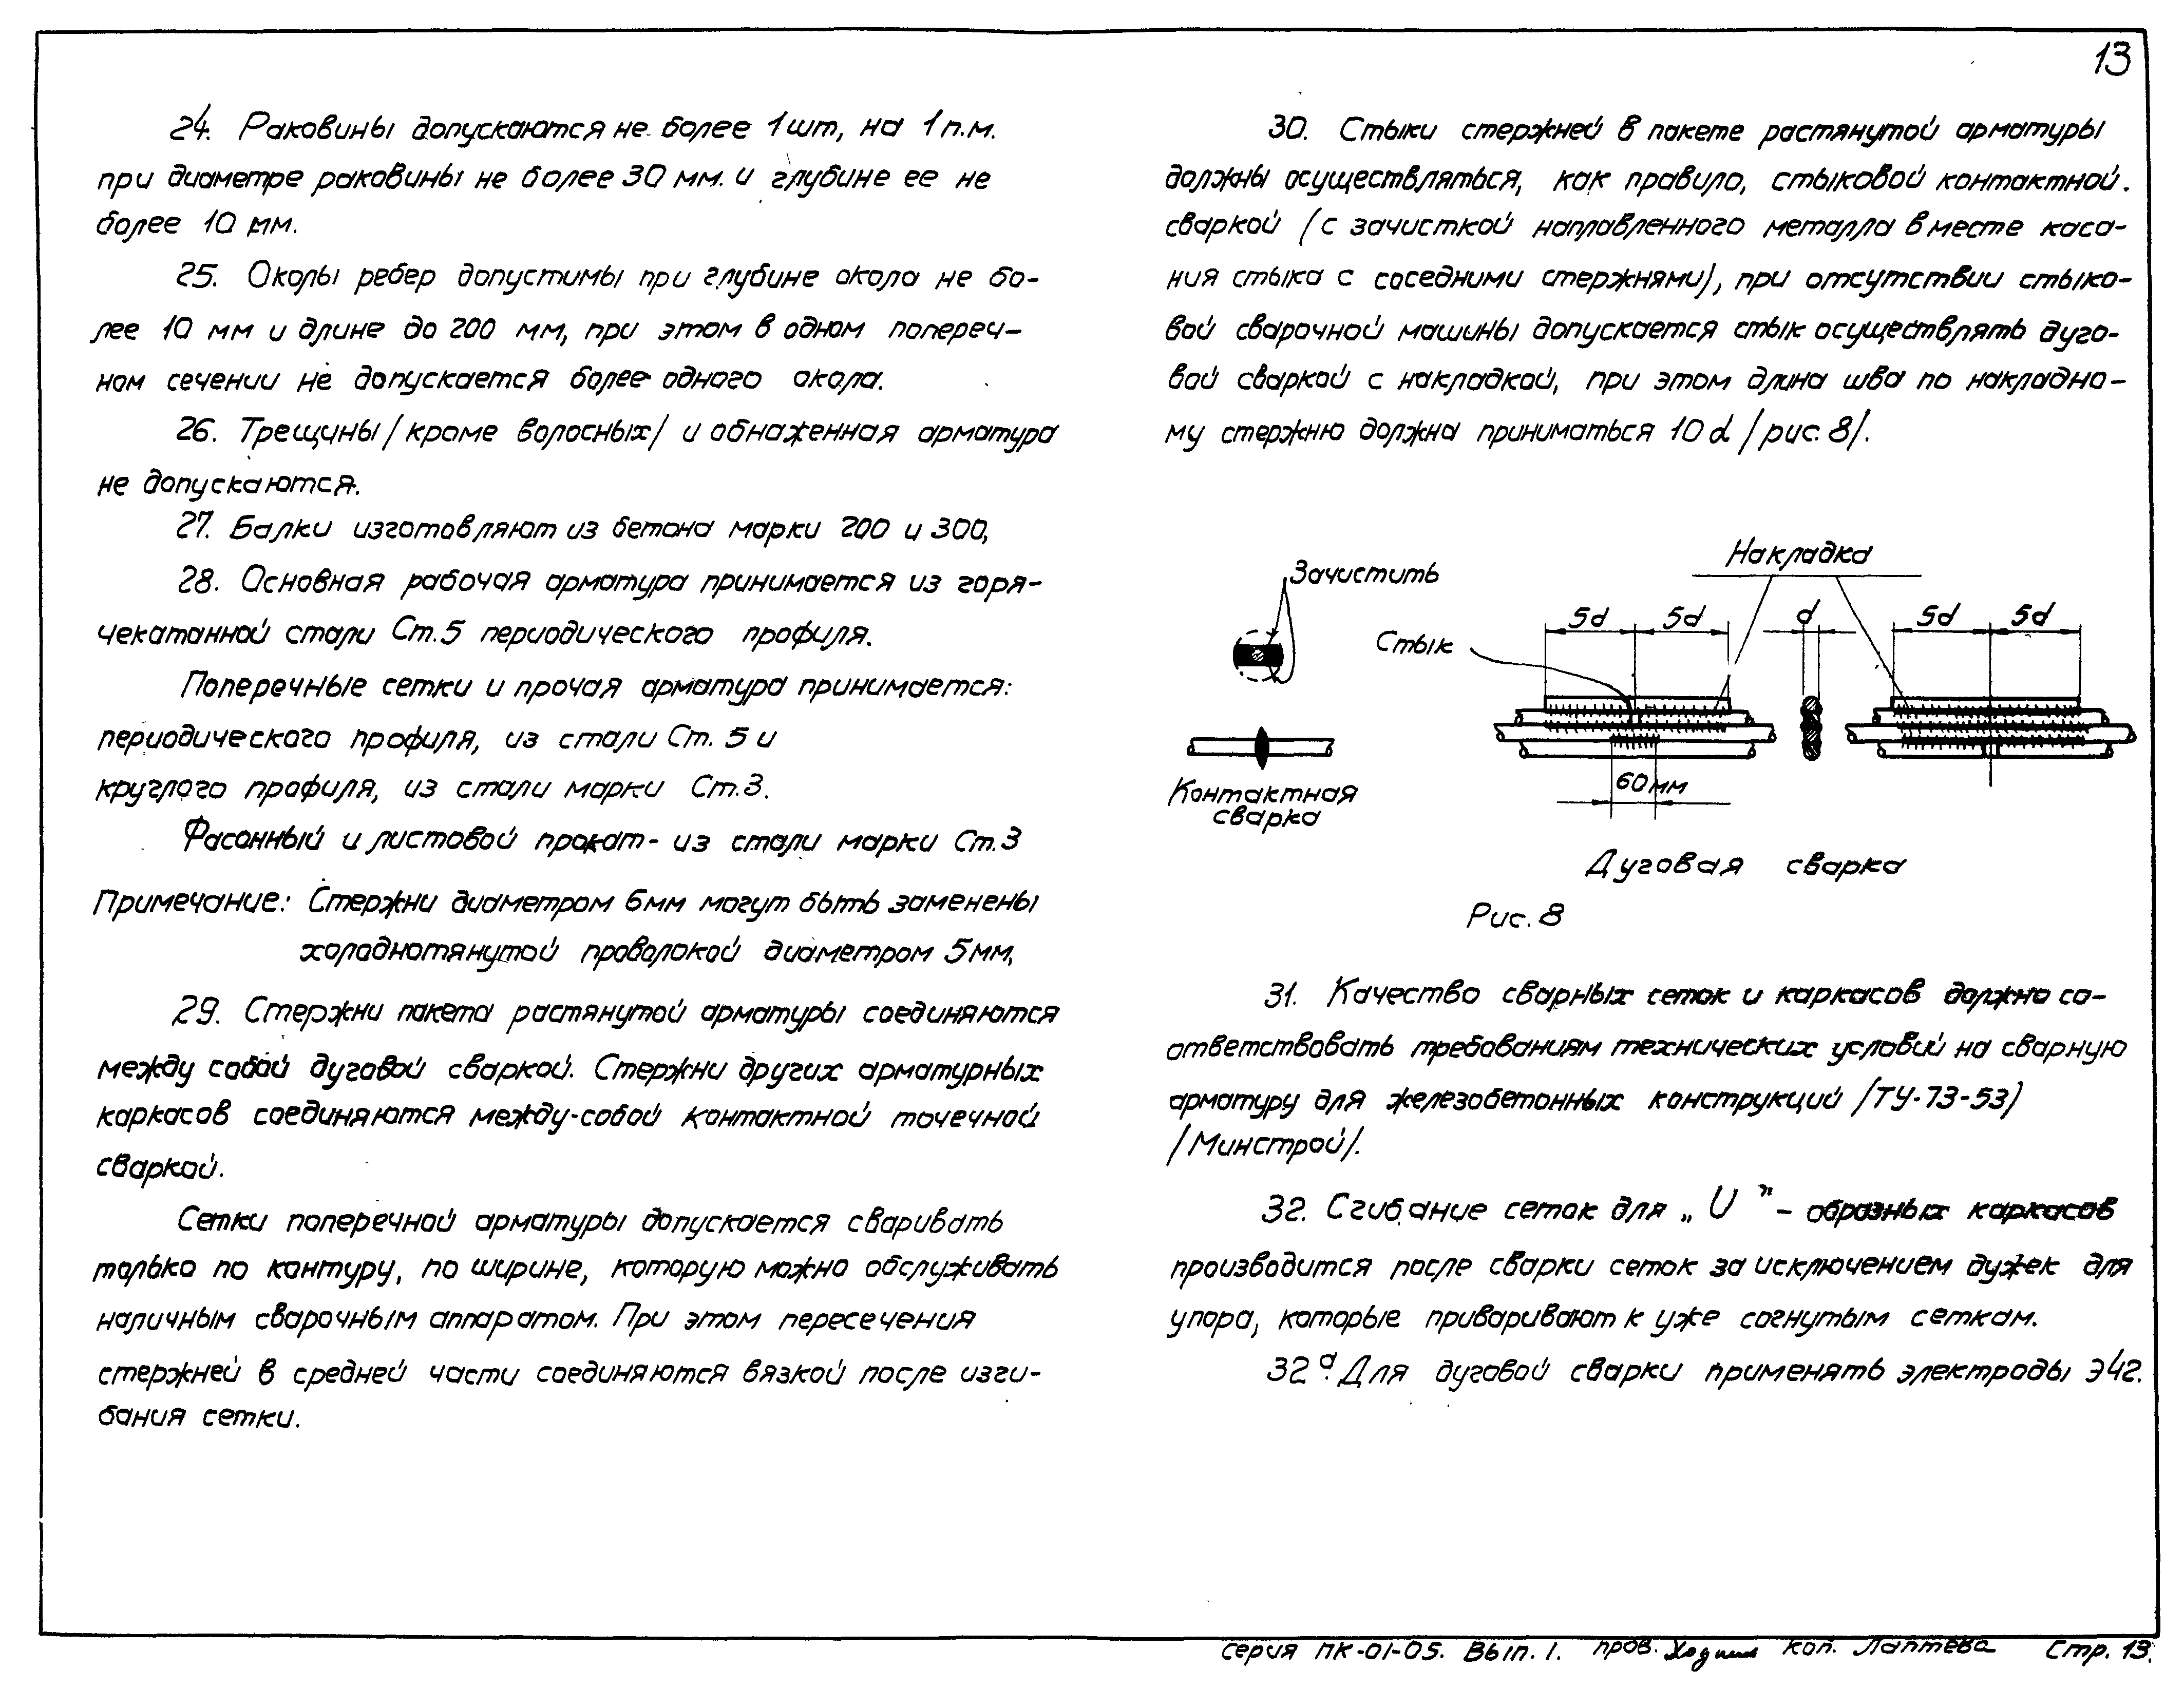 13
24. Раковины допускаются не более 1шт, на 1п.м.
при диаметре раковины не более 30 мм. и глубине ее не
более 10 мм.
25. Околы ребер допустимы при глубине окола не бо-
лее 10 мм и длине до 200 мм, при этом в одном попереч-
ном сечении не допускается более одного окола.
26. Трещины /кроме волосных/ и обнаженная арматура
не допускаются.
27. Балки изготовляют из бетона марки 200 и 300,
28. Основная рабочая арматура принимается из горя-
чекатанной стали Ст.5 периодического профиля.
Поперечные сетки и прочая арматура принимается:
периодического профиля, из стали Ст. 5 и
круглого профиля, из стали марки Ст.3.
Фасонный и листовой прокат- из стали марки Ст.3
Примечание: Стержни диаметром 6мм могут быть заменены
холоднотянутой проволокой диаметром 5мм,
29. Стержни пакета растянутой арматуры соединяются
между собой дуговой сваркой. Стержни других арматурных
каркасов соединяются между-собой контактной точечной
сваркой.
Сетки поперечной арматуры допускается сваривать
только по контуру, по ширине, которую можно обслуживать
наличным сварочным аппаратом. При этом пересечения
стержней в средней части соединяются вязкой после изги-
бания сетки.
30. Стыки стержней в пакете растянутой арматуры
должны осуществляться, как правило, стыковой контактной.
сваркой /с зачисткой наплавленного металла в месте каса-
ния стыка с соседними стержнями/, при отсутствии стыко-
вой сварочной машины допускается стык осуществлять дуго-
вой сваркой с накладкой, при этом длина шва по накладно-
му стержню должна приниматься 10d /рис. 8/.
Зачистить
Накладка
Стык
5d 5d d 5d 5d
60мм
Контактная
сварка
Дуговая сварка
Рис. 8
31. Качество сварных сеток и каркасов должно со-
ответствовать требованиям технических условий на сварную
арматуру для железобетонных конструкций /ТУ-73-53/
/Минстрой/.
32. Сгибание сеток для „U” - образных каркасов
производится после сварки сеток за исключением дужек для
упора, которые приваривают к уже согнутым сеткам.
32а. Для дуговой сварки применять электроды Э42.
серия ПК-01-05. Вып. 1. пров. коп. Лаптева Стр. 13.